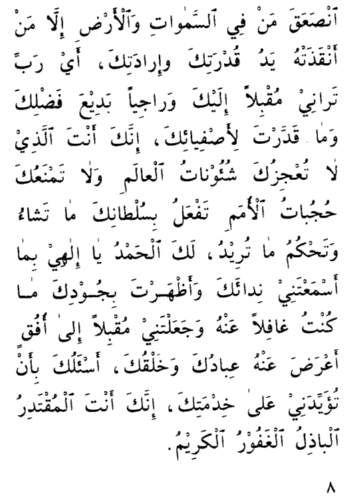 ٱنْصَعَقَ مَنْ فِي ٱلسَّمٰواتِ وَٱلْأَرْضِ إِلَّا مَنْ
أَنْقَذَتْهُ يَدُ قُدْرَتِكَ وإِرادَتِكَ، أَيْ رَبِّ
تَرانِيْ مُقْبِلاً إِلَيْكَ وَراجِياً بَدِيْعَ فَضْلِكَ
وَمٰا قَدَّرْتَ لِأَصْفِيائِكَ، إِنَّكَ أَنْتَ ٱلَّذِيْ
لٰا تُعْجِزُكَ شُئُوْناتُ ٱلْعالَمِ وَلٰا تَمْنَعُكَ
حُجُباتُ ٱلْأُمَمِ تَفْعَلُ بِسُلْطانِكَ مٰا تَشاءُ
وَتَحْكُمُ مٰا تُرِيْدُ، لَكَ ٱلْحَمْدُ يٰا إِلٰهِيْ بِمٰا
أَسْمَعْتَنِيْ نِدائَكَ وَأَظْهَرْتَ بِجُوْدِكَ مٰا
كُنْتُ غافِلاً عَنْهُ وَجَعَلْتَنِيْ مُقْبِلاً إِلىٰ أُفُقٍ
أَعْرَضَ عَنْهُ عِبادُكَ وَخَلْقُكَ، أَسْئَلُكَ بِأَنْ
تُؤَيِّدَنِيْ عَلىٰ خِدْمَتِكَ، إِنَّكَ أَنْتَ ٱلْمُقْتَدِرُ
ٱلْباذِلُ ٱلْغَفُوْرُ ٱلْكَرِيْمُ.
٨